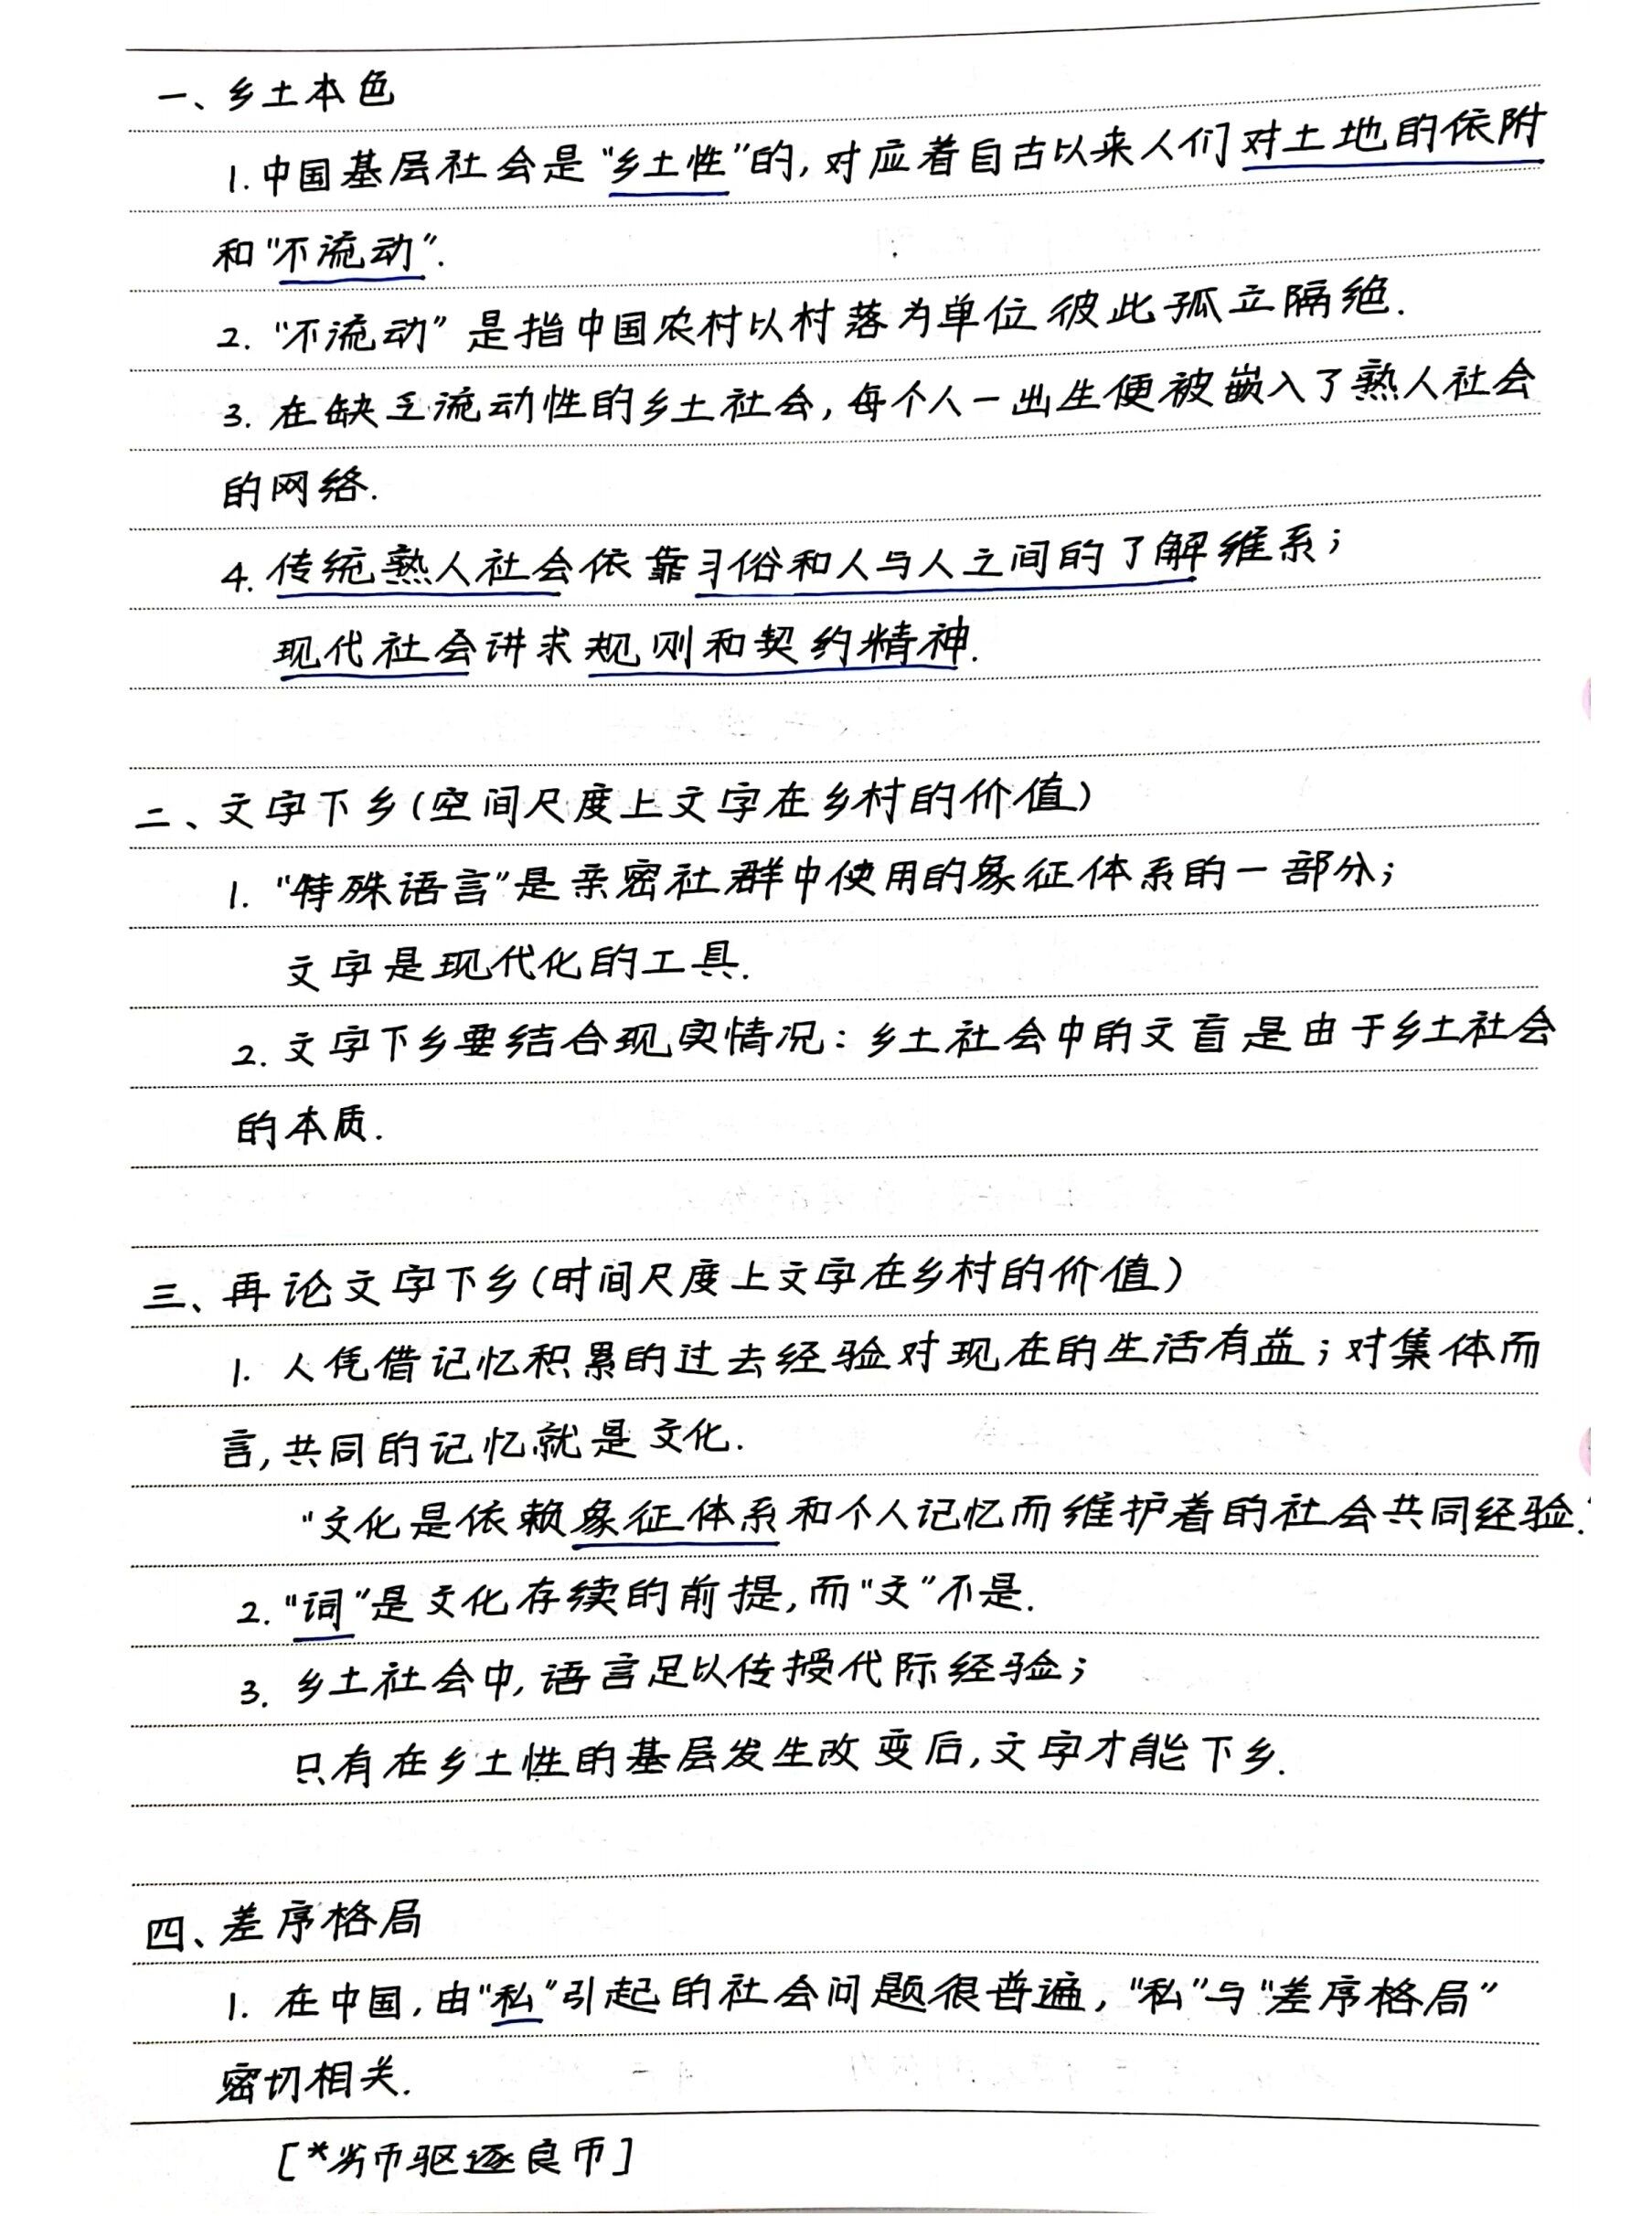 一、乡土本色
1.中国基层社会是“乡土性”的,对应着自古以来人们对土地的依附
和“不流动”.
2.“不流动”是指中国农村以村落为单位彼此孤立隔绝.
3.在缺乏流动性的乡土社会,每个人一出生便被嵌入了熟人社会
的网络.
4.传统熟人社会依靠习俗和人与人之间的了解维系;
现代社会讲求规则和契约精神.
二、文字下乡(空间尺度上文字在乡村的价值)
1.“特殊语言”是亲密社群中使用的象征体系的一部分;
文字是现代化的工具.
2.文字下乡要结合现实情况:乡土社会中的文盲是由于乡土社会
的本质.
三、再论文字下乡(时间尺度上文字在乡村的价值)
1.人凭借记忆积累的过去经验对现在的生活有益;对集体而
言,共同的记忆就是文化.
“文化是依赖象征体系和个人记忆而维护着的社会共同经验.”
2.“词”是文化存续的前提,而“文”不是.
3.乡土社会中,语言足以传授代际经验;
只有在乡土性的基层发生改变后,文字才能下乡.
四、差序格局
1.在中国,由“私”引起的社会问题很普遍,“私”与“差序格局”
密切相关.
[*劣币驱逐良币]